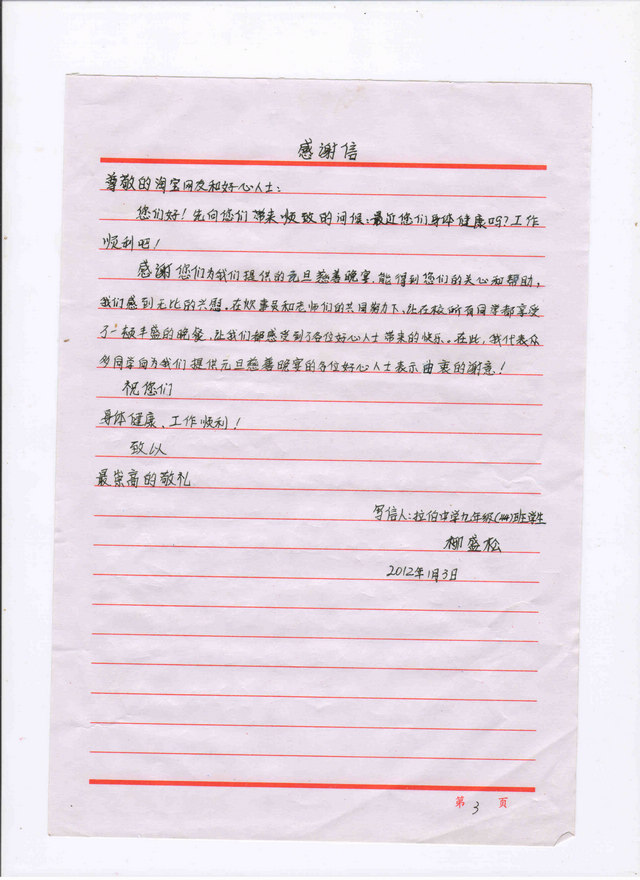 感谢信
尊敬的淘宝网友和好心人士：
您们好！先向您们带来顺致的问候：最近您们身体健康吗？工作
顺利吧！
感谢您们为我们提供的元旦慈善晚宴，能得到您们的关心和帮助，
我们感到无比的兴慰。在炊事员和老师们的共同努力下，让在校所有同学都享受
了一顿丰盛的晚餐，让我们都感受到了各位好心人士带来的快乐。在此，我代表众
多同学向为我们提供元旦慈善晚宴的各位好心人士表示由衷的谢意！
祝您们
身体健康、工作顺利！
致以
最崇高的敬礼
写信人：拉伯中学九年级()班学生
柳盛松
2012年1月3日
第3页